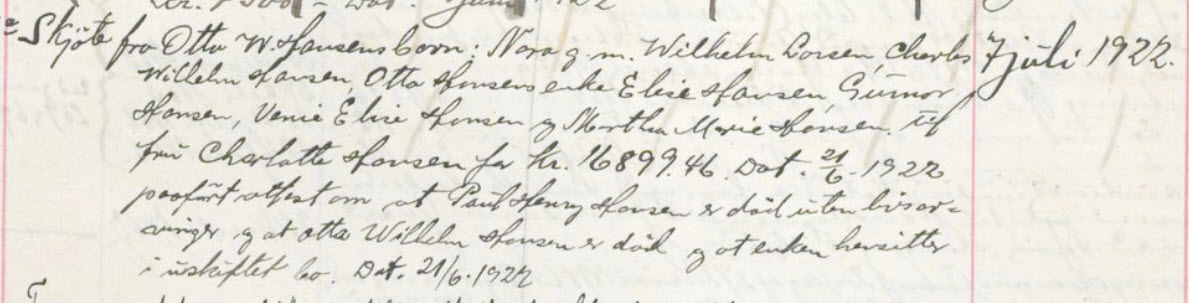 Skjöte fra Otto W. Hansens barn: Nora g. m. Wilhelm Larsen, Charles 7 juli 1922.
Willehn Hansen, Otto Hansens enke Elise Hansen, Gunnor
Hansen, Venie Elise Hansen og Martha Marie Hansen. til
frü Charlotte Hansen for Kr. 16899.46. Dat. 21/6 - 1922
paaført attest om at Paul Henry Hansen er död uten livsar-
vinger og at Otto Wilhelm Hansen er död og at enken hensitter
i uskiftet bo. Dat. 21/6 - 1922